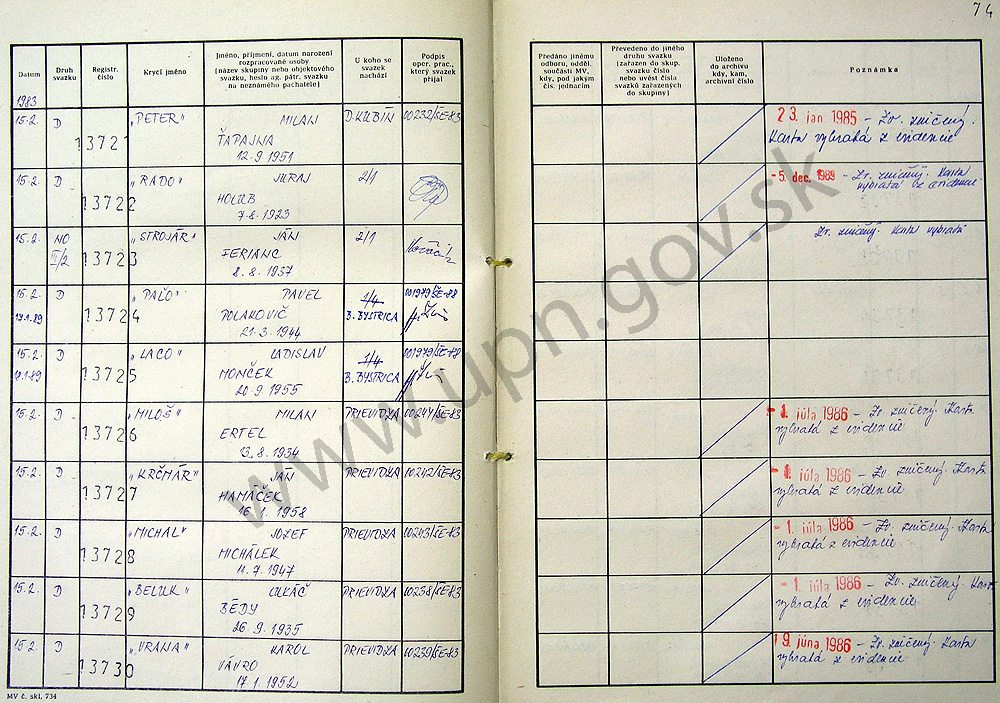 74
Datum
Druh
svazku
Registr.
číslo
Krycí jméno
Jméno, příjmení, datum narození
rozpracované osoby
(název skupiny nebo objektového
svazku, heslo ag. pátr. svazku
na neznámého pachatele)
U koho se
svazek
nachází
Podpis
oper. prac.,
který svazek
přijal
Předáno jinému
odboru, odděl.
součásti MV,
kdy, pod jakým
čís. jednacím
Převedeno do jiného
druhu svazku
(zařazen do skup.
svazku číslo
nebo uvést čísla
svazků zařazených
do skupiny)
Uloženo
do archivu
kdy, kam,
archivní číslo
Poznámka
1983
15.2. D 13721 "PETER" MILAN D. KUBÍN 00232/ŠE-83
ŤAPAJNA
12.9.1951
23. jan 1985 – Zv. zničený.
Karta vybratá z evidencie
15.2. D 13722 "RADO" JURAJ 2/1
HOLUB
7.8.1923
-5. dec. 1989 – Zv. zničený. Karta
vybratá z evidencie
15.2. NO 13723 "STROJÁR" JÁN 2/1
II/2 FERIANC
8.8.1937
Zv. zničený. Karta vybratá
15.2. D 13724 "PAĽO" PAVEL 1/4 001979/ŠE-88
17.1.89 POLAKOVIČ B. BYSTRICA
21.3.1944
15.2. D 13725 "LACO" LADISLAV 1/4 001979/ŠE-88
17.1.89 MONČEK B. BYSTRICA
20.9.1955
15.2. D 13726 "MILOŠ" MILAN PRIEVIDZA 00244/ŠE-83
ERTEL
13.8.1934
-1. júla 1986 – Zv. zničený. Karta
vybratá z evidencie
15.2. D 13727 "KRČMÁR" JÁN PRIEVIDZA 00242/ŠE-83
HAMÁČEK
16.1.1958
-1. júla 1986 – Zv. zničený. Karta
vybratá z evidencie
15.2. D 13728 "MICHAL" JOZEF PRIEVIDZA 00243/ŠE-83
MICHÁLEK
11.7.1947
-1. júla 1986 – Zv. zničený. Karta
vybratá z evidencie
15.2. D 13729 "BELUK" LUKÁČ PRIEVIDZA 00238/ŠE-83
BÉDY
26.9.1935
-1. júla 1986 – Zv. zničený. Karta
vybratá z evidencie
15.2. D 13730 "VRANA" KAROL PRIEVIDZA 00239/ŠE-83
VÁVRO
17.1.1952
19. júna 1986 – Zv. zničený. Karta
vybratá z evidencie
MV č. skl. 734
www.upn.gov.sk